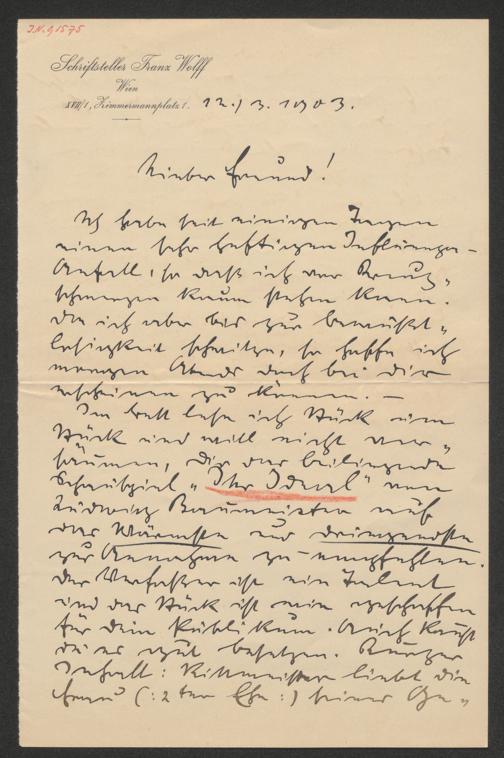 J.N. 91575
Schriftsteller Franz Wolff
Wien
XVII/1, Zimmermannplatz 1.
12./3. 1903.
Lieber Freund!
Ich habe seit einigen Tagen
einen sehr heftigen Influenza-
Anfall, so daß ich vor Kreuz-
schmerzen kaum stehen kann.
Da ich aber bis zur Bewußt-
losigkeit schwitze, so hoffe ich
morgen Abends doch bei dir
erscheinen zu können. –
Im Bett lese ich Stück um
Stück und will nicht ver-
säumen, dir das beiliegende
Schauspiel „Ihr Ideal" von
Ludwig Baumeister auf
das Wärmste und dringendste
zur Annahme zu empfehlen.
Der Verfasser ist ein Talent
und das Stück ist wie geschaffen
für dein Publikum. Auch kannst
du es gut besetzen. Kurzer
Inhalt: Rittmeister liebt die
Frau (: 2ter Ehe :) seines